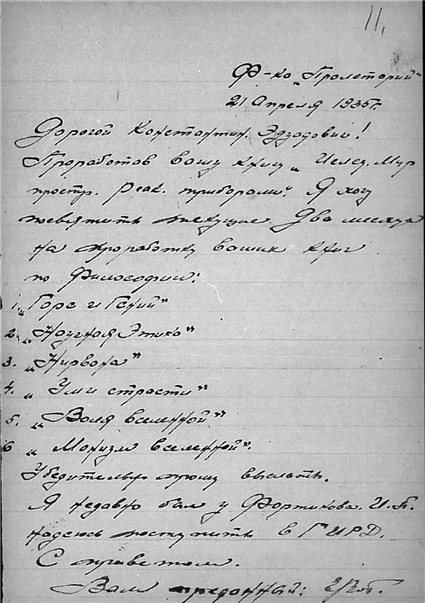 11.
Ф-ка „Пролетарий"
21 Апреля 1935г.
Дорогой Константин Эдуардович!
Проработав вашу книгу „Исслед. Мир
простр. Реак. приборами". Я хочу
посвятить текущие Два месяца
на проработку ваших книг
по Философии:
1. „Горе и Гений"
2. „Научная Этика"
3. „Нирвана"
4. „Ум и страсти"
5. „Воля вселенной"
6 „Монизм вселенной".
Убедительно прошу выслать.
Я недавно был у Фортикова. И.П.
надеюсь поступить в ГИРД.
С приветом.
Вам преданный: